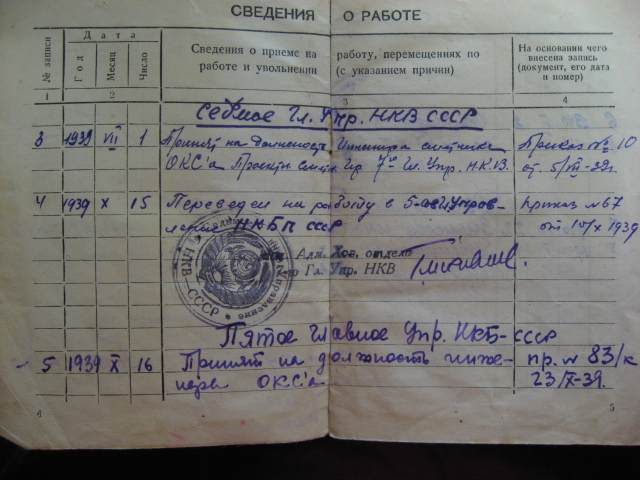 СВЕДЕНИЯ О РАБОТЕ
№ записи
Дата
Год
Месяц
Число
Сведения о приеме на работу, перемещениях по
работе и увольнении (с указанием причин)
На основании чего
внесена запись
(документ, его дата
и номер)
1 2 3 4
Седьмое Гл. Упр. НКВ СССР
3 1939 VII 1 Принят на должность Инженера сметчика Приказ № 10
ОКС'а 7го Гл. Упр. Н.К.В. от 5/VII-39г.
4 1939 X 15 Переведен на работу в 5-ое Управ- Приказ № 67
ление НКБП СССР от 1939
Адм. Хоз. отдела
Гл. Упр. НКВ
НКВ СССР
Пятое Главное Упр. НКБ-СССР
5 1939 X 16 Принят на должность инже- пр. № 83/к
нера ОКС'а 23/X-39.
4 5